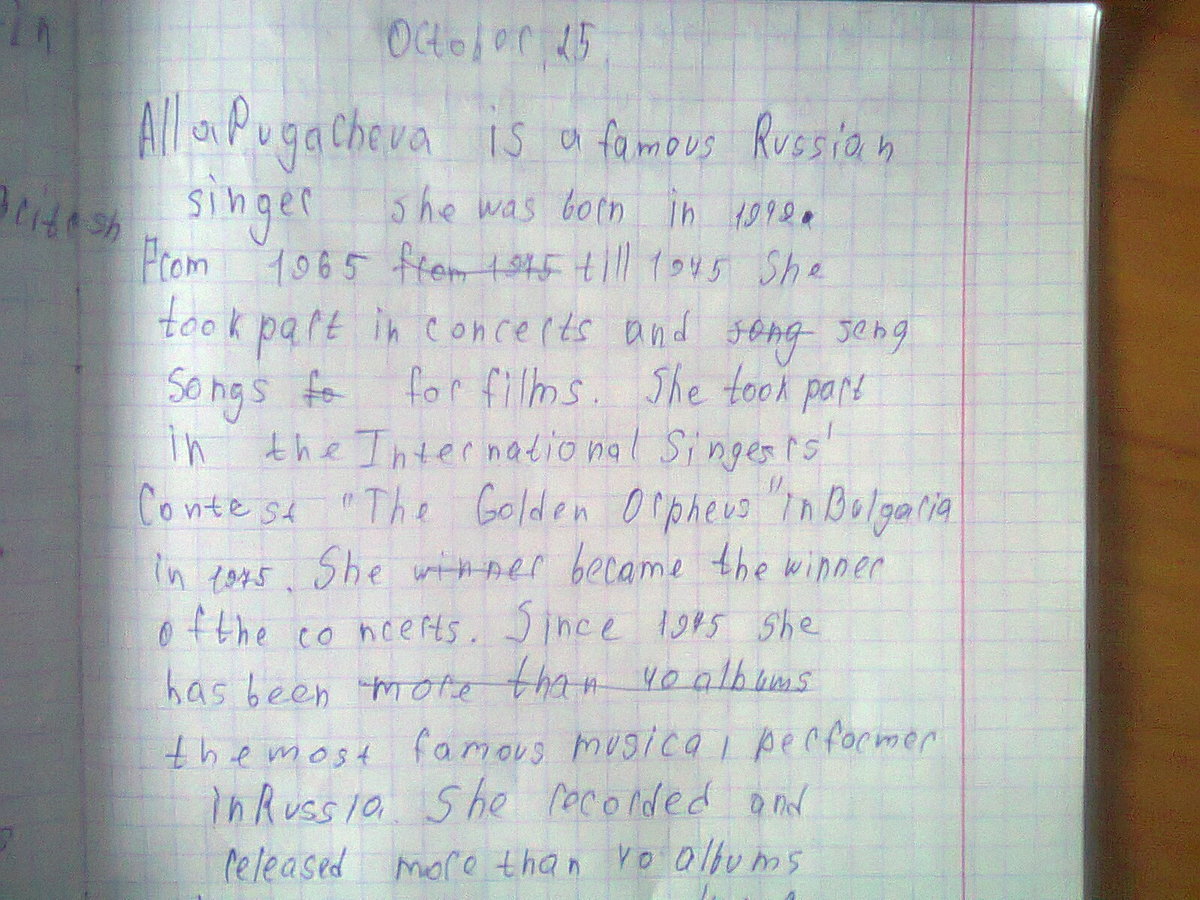 In
October, 25.
Alla Pugacheva is a famous Russian
singer she was born in 1949.
Britesh
From 1965 from 1975 till 1975 She
took part in concerts and song seng
Songs fo for films. She took part
in the International Singers'
Contest "The Golden Orpheus" in Bulgaria
in 1975. She winner became the winner
of the concerts. Since 1975 she
has been more than 40 albums
the most famous musical performer
in Russia. She recorded and
released more than 40 albums